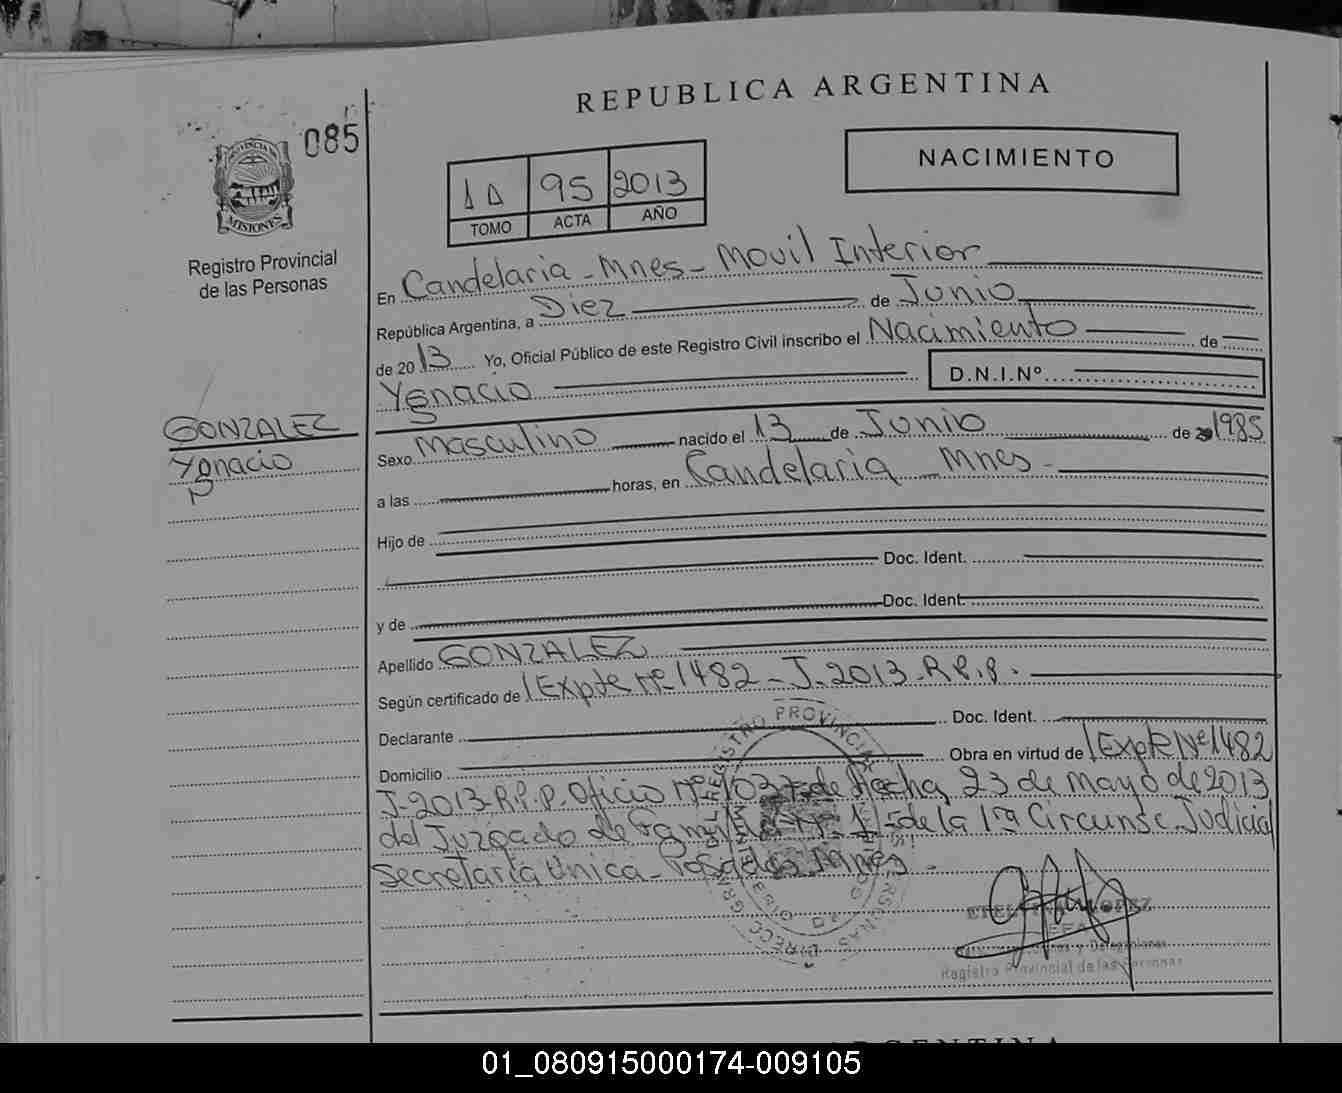 REPUBLICA ARGENTINA
085
NACIMIENTO
1D 95 2013
TOMO ACTA AÑO
PROVINCIA DE
MISIONES
Registro Provincial
de las Personas
En Candelaria - Mnes - Movil Interior
República Argentina, a Diez de Junio
de 2013 Yo, Oficial Público de este Registro Civil inscribo el Nacimiento de
Ygnacio D.N.I.Nº
GONZALEZ
Ygnacio
Sexo Masculino nacido el 13 de Junio de 1985
a las horas, en Candelaria Mnes -
Hijo de
Doc. Ident.
y de Doc. Ident.
Apellido GONZALEZ
Según certificado de Expte Nº 1482 - J - 2013 - R.P.P.
Declarante Doc. Ident.
Domicilio Obra en virtud de Expte Nº 1482
J-2013-R.P.P. Oficio Nº de Fecha, 23 de Mayo de 2013
del Juzgado de Familia Nº 1 - de la 1ra Circunsc. Judicial
Secretaria Unica - Posadas Mnes -
Registro Provincial de las Personas
ARGENTINA
01_080915000174-009105